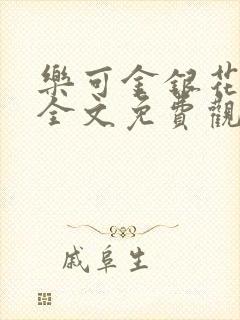 樂可金銀花
全文免費觀
戚阜生